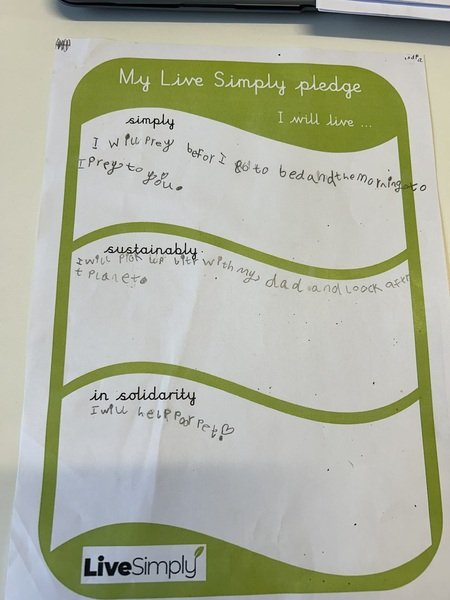 India
My Live Simply pledge
I will live ...
simply
I will prey befor I go to bed and the morning to
I prey to you.
sustainably
I will pick up litr with my dad and loock after
t planet.
in solidarity
I will help poor pet.
LiveSimply